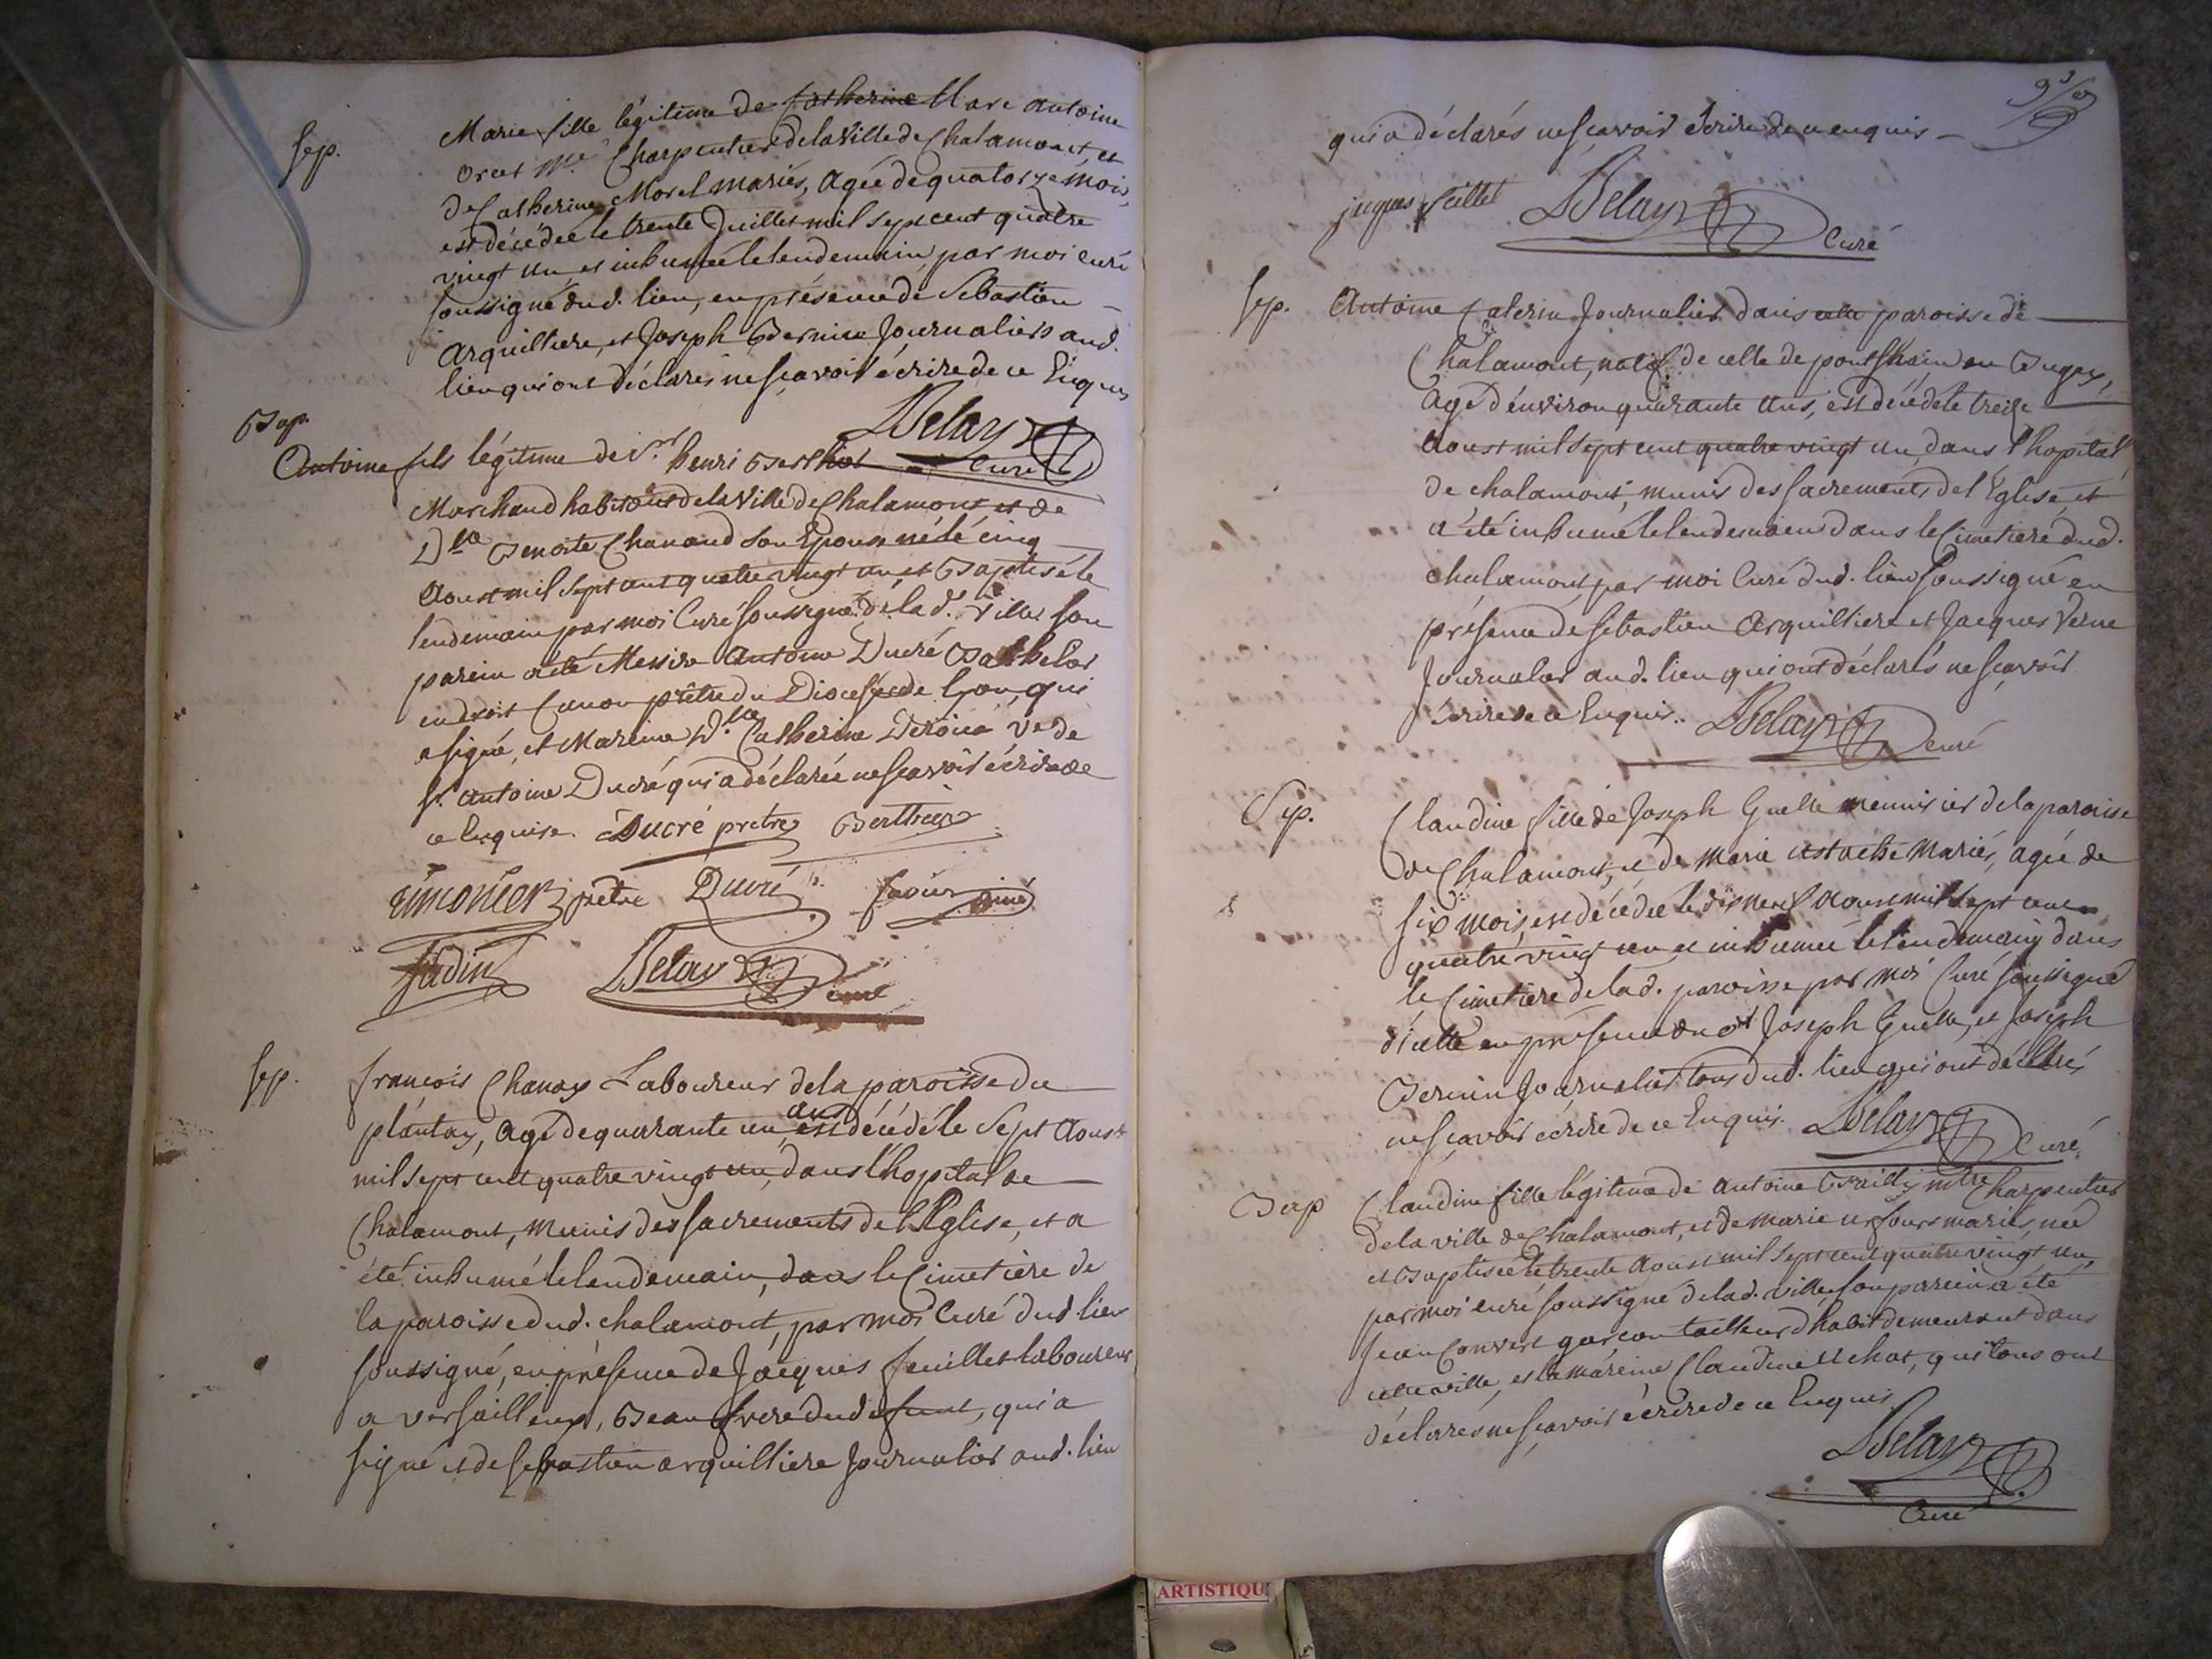 Sep.
Marie fille légitime de Catherine Marc antoine
orcet Me. Charpentier de la Ville de Chalamont et
de Catherine Morel mariés, agée de quatorze mois,
est décédée le trente Juillet mil sept cent quatre
vingt un et inhumée le lendemain, par moi curé
soussigné dud. lieu, en présence de Sebastien
Arquilliere, et Joseph Bernin Journaliers aud.
lieu qui ont déclarés ne sçavoir écrire de ce Enquis
Delay curé
Bap.
Antoine fils légitime de Sr. henri Berthet
Marchand habitant de la Ville de Chalamont et de
Dlle Benoite Chanaud son Epouse né le cinq
Aoust mil sept cent quatre vingt un et Baptisé le
lendemain par moi Curé soussigné de la d. Ville son
parein a été Messire Antoine Ducré Bachelor
en droit Canon prêtre du Diocese de Lyon, qui
a signé, et Mareine D.lle Catherine Ve de
Sr. Antoine Ducré qui a déclarée ne sçavoir écrire de
ce Enquise. Ducré prêtre
prêtre Ducré ainé
Jadin Delay curé
Sep.
françois Chanay Laboureur de la paroisse du
plantay, agé de quarante un ans est décédé le Sept Aoust
mil sept cent quatre vingt un, dans l'hopital de
Chalamont, munis des sacrements de l'Eglise, et a
été inhumé le lendemain, dans le Cimetière de
la paroisse dud. chalamont, par moi Curé dud lieu
soussigné, en présence de Jacques feuillet laboureur
a versailleux, Beau frere du défunt, qui a
signé et de sebastien arquilliere Journalier aud. lieu
qui a déclarés ne sçavoir écrire de ce enquis
jacques Delay Curé
Sep.
Antoine Caterin Journalier dans cette paroisse de
Chalamont, natif de celle de pontdhain en Bugey,
agé d'environ quarante ans, est décédé le treize
Aoust mil sept cent quatre vingt un, dans l'hopital
de chalamont, munis des sacrements de l'Eglise, et
a été inhumé le lendemain dans le Cimetiere dud.
chalamont, par moi Curé dud. lieu soussigné en
présence de Sebastien Arquilliere et Jacques Verne
Journalier aud. lieu qui ont déclarés ne sçavoir
Ecrire de ce Enquis. Delay curé
Sep.
Claudine fille de Joseph Guelle menuisier de la paroisse
de Chalamont, et de Marie Mariés, agée de
six mois, est décédée le dixneuf aoust mil sept cent
quatre vingt un et inhumée le lendemain dans
le Cimetiere de lad. paroisse par moi Curé soussigné
d'icelle en presence dud Joseph Guelle, et Joseph
Bernin Journalier tous dud. lieu qui ont déclarés
ne sçavoir écrire de ce Enquis. Delay Curé.
Bap
Claudine fille légitime de Antoine mtre Charpentier
de la ville de Chalamont, et de marie mariés, née
et Baptisée le trente Aoust mil sept cent quatre vingt un,
par moi curé soussigné de lad. ville son parein a été
Jean Convert garçon tailleur d'habit demeurant dans
cette ville, et la mareine Claudine uchat, qui tous ont
déclarés ne sçavoir écrire de ce Enquis
Delay
Curé
ARTISTIQU